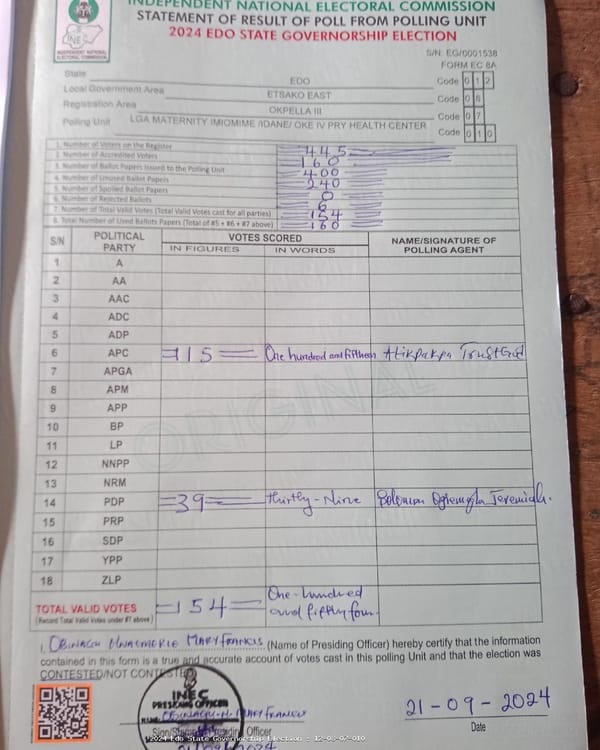 INDEPENDENT NATIONAL ELECTORAL COMMISSION
STATEMENT OF RESULT OF POLL FROM POLLING UNIT
2024 EDO STATE GOVERNORSHIP ELECTION
INDEPENDENT NATIONAL ELECTORAL COMMISSION
S/N: EG/0001538
FORM EC 8A
State EDO Code 0 1 2
Local Government Area ETSAKO EAST Code 0 8
Registration Area OKPELLA III Code 0 7
Polling Unit LGA MATERNITY IMIOMIME /IDANE/ OKE IV PRY HEALTH CENTER Code 0 1 0
1. Number of Voters on the Register 445
2. Number of Accredited Voters 160
3. Number of Ballot Papers Issued to the Polling Unit 400
4. Number of Unused Ballot Papers 240
5. Number of Spoiled Ballot Papers 0
6. Number of Rejected Ballots 6
7. Number of Total Valid Votes (Total Valid Votes cast for all parties) 154
8. Total Number of Used Ballots Papers (Total of #5 + #6 + #7 above) 160
S/N POLITICAL PARTY VOTES SCORED NAME/SIGNATURE OF POLLING AGENT
IN FIGURES IN WORDS
1 A
2 AA
3 AAC
4 ADC
5 ADP
6 APC =115= One hundred and fifthteen Atikpakpa TrustGod
7 APGA
8 APM
9 APP
10 BP
11 LP
12 NNPP
13 NRM
14 PDP =39= thirtty-Nine Solomon Jeremiah.
15 PRP
16 SDP
17 YPP
18 ZLP
ORIGINAL
TOTAL VALID VOTES =154= One-hundred and fifty four
(Record Total Valid Votes under #7 above)
I, OBINAGU MARYFRANCIS (Name of Presiding Officer) hereby certify that the information
contained in this form is a true and accurate account of votes cast in this polling Unit and that the election was
CONTESTED/NOT CONTESTED
INEC
PRESIDING OFFICER
NAME: OBINAGU-N. MARYFRANCIS
21-09-2024
Date
2024 Edo State Governorship Election : 12-08-07-010